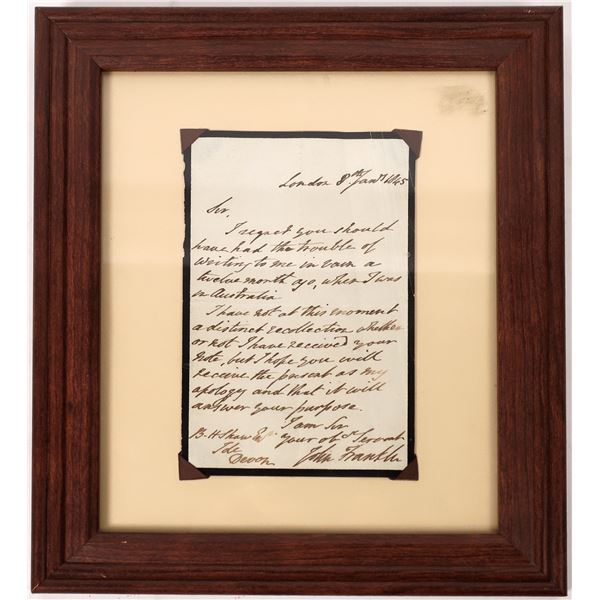 London 8th Jany 1845
Sir,
I regret you should
have had the trouble of
writing to me in vain a
twelve month ago, when I was
in Australia
I have not at this moment
a distinct recollection whether
or not I have received your
note, but I hope you will
receive the present as my
apology and that it will
answer your purpose.
I am Sir
B. H Shaw Esqr your obt Servant
Devon John Franklin